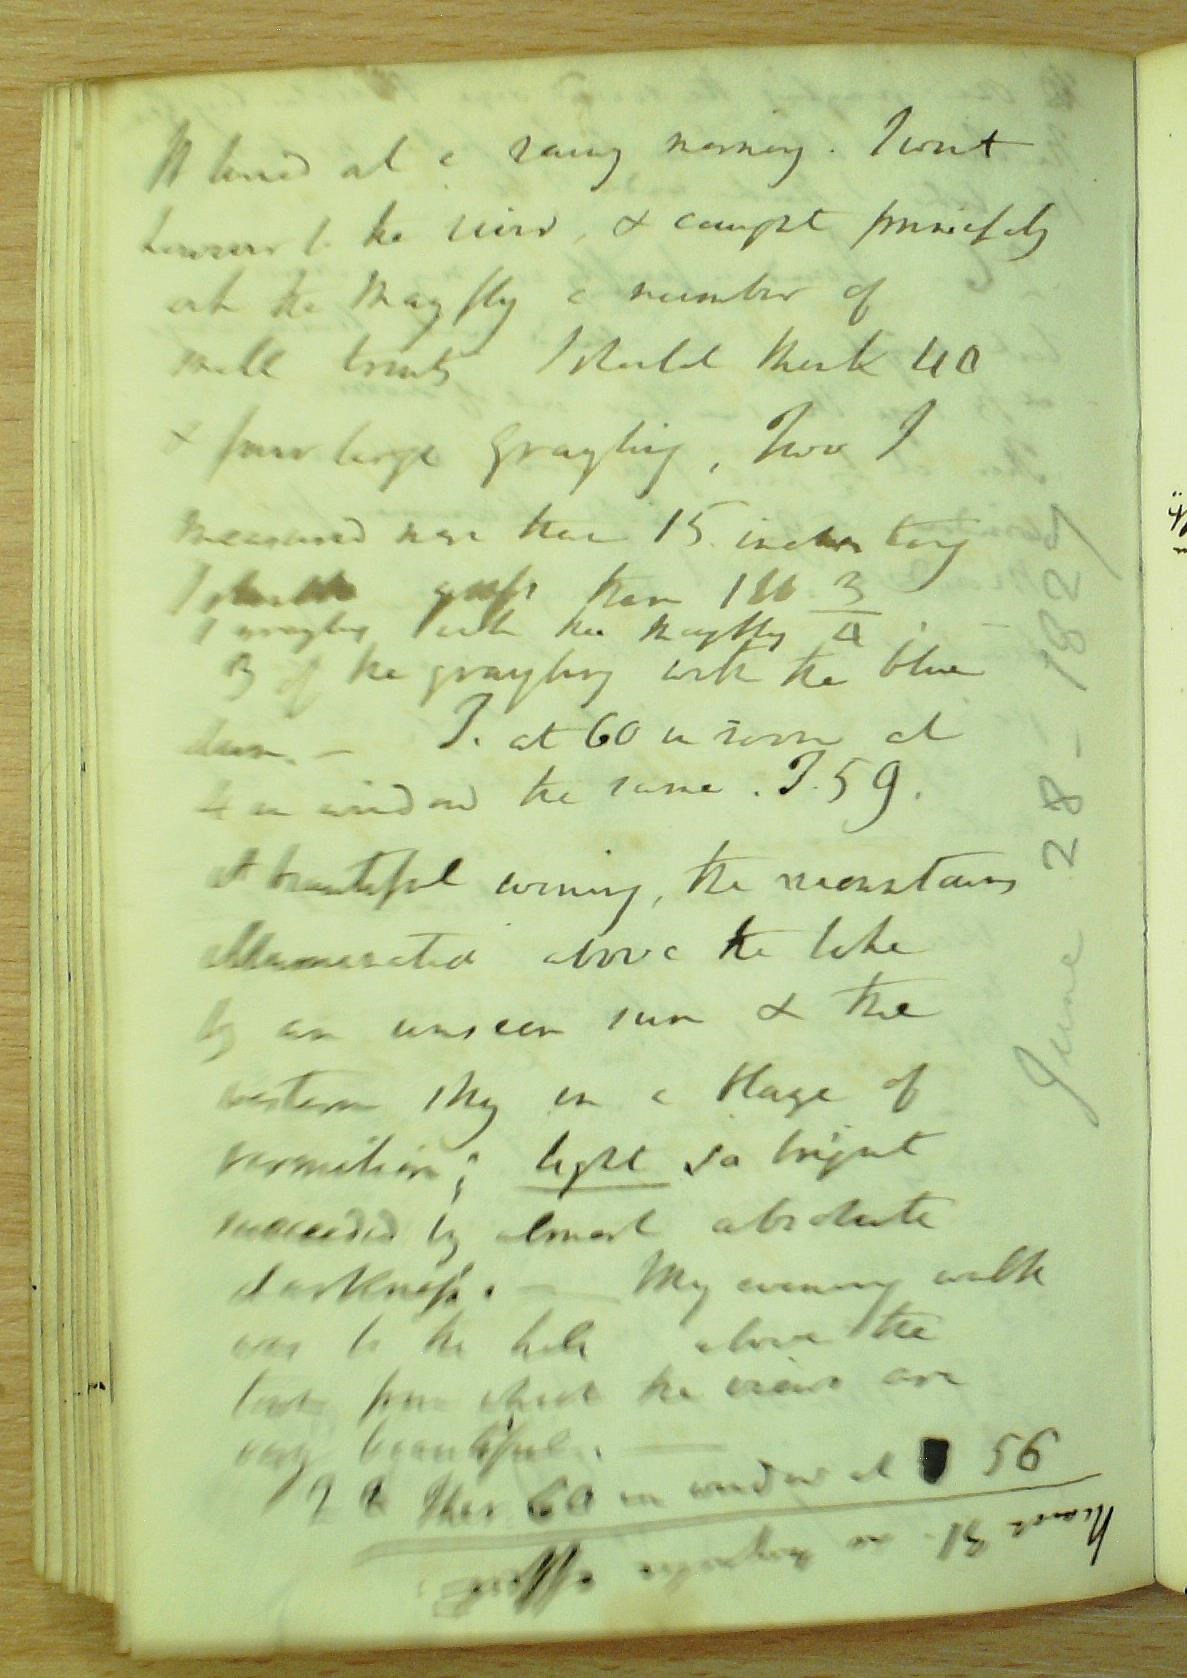 at a rainy morning. I went
however to the river, & caught principally
with the Mayfly a number of
small trouts I should think 40
& four large grayling, Two I
measured near than 15 inches long
1lb 3/4
1 grayling with the Mayfly
3 of the grayling with the blue
dun. — T. at 60 in room at
4 in window the same. T. 59.
A beautiful evening, the mountains
illuminated above the lake
by an unseen sun & the
western sky in a blaze of
vermilion; light so bright
succeeded by almost absolute
darkness. — My evening walk
was to the hill above the
town from which the views are
very beautiful. —
Ther. 60 in window at 56
March 31. no
June 28 - 1827